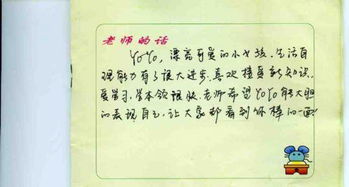 老师的话
YoYo,漂亮可爱的小女孩,生活自
理能力有了很大进步,喜欢接受新知识,
爱学习,学本领很快,老师希望YoYo能大胆
的表现自己,让大家都看到你棒的一面!